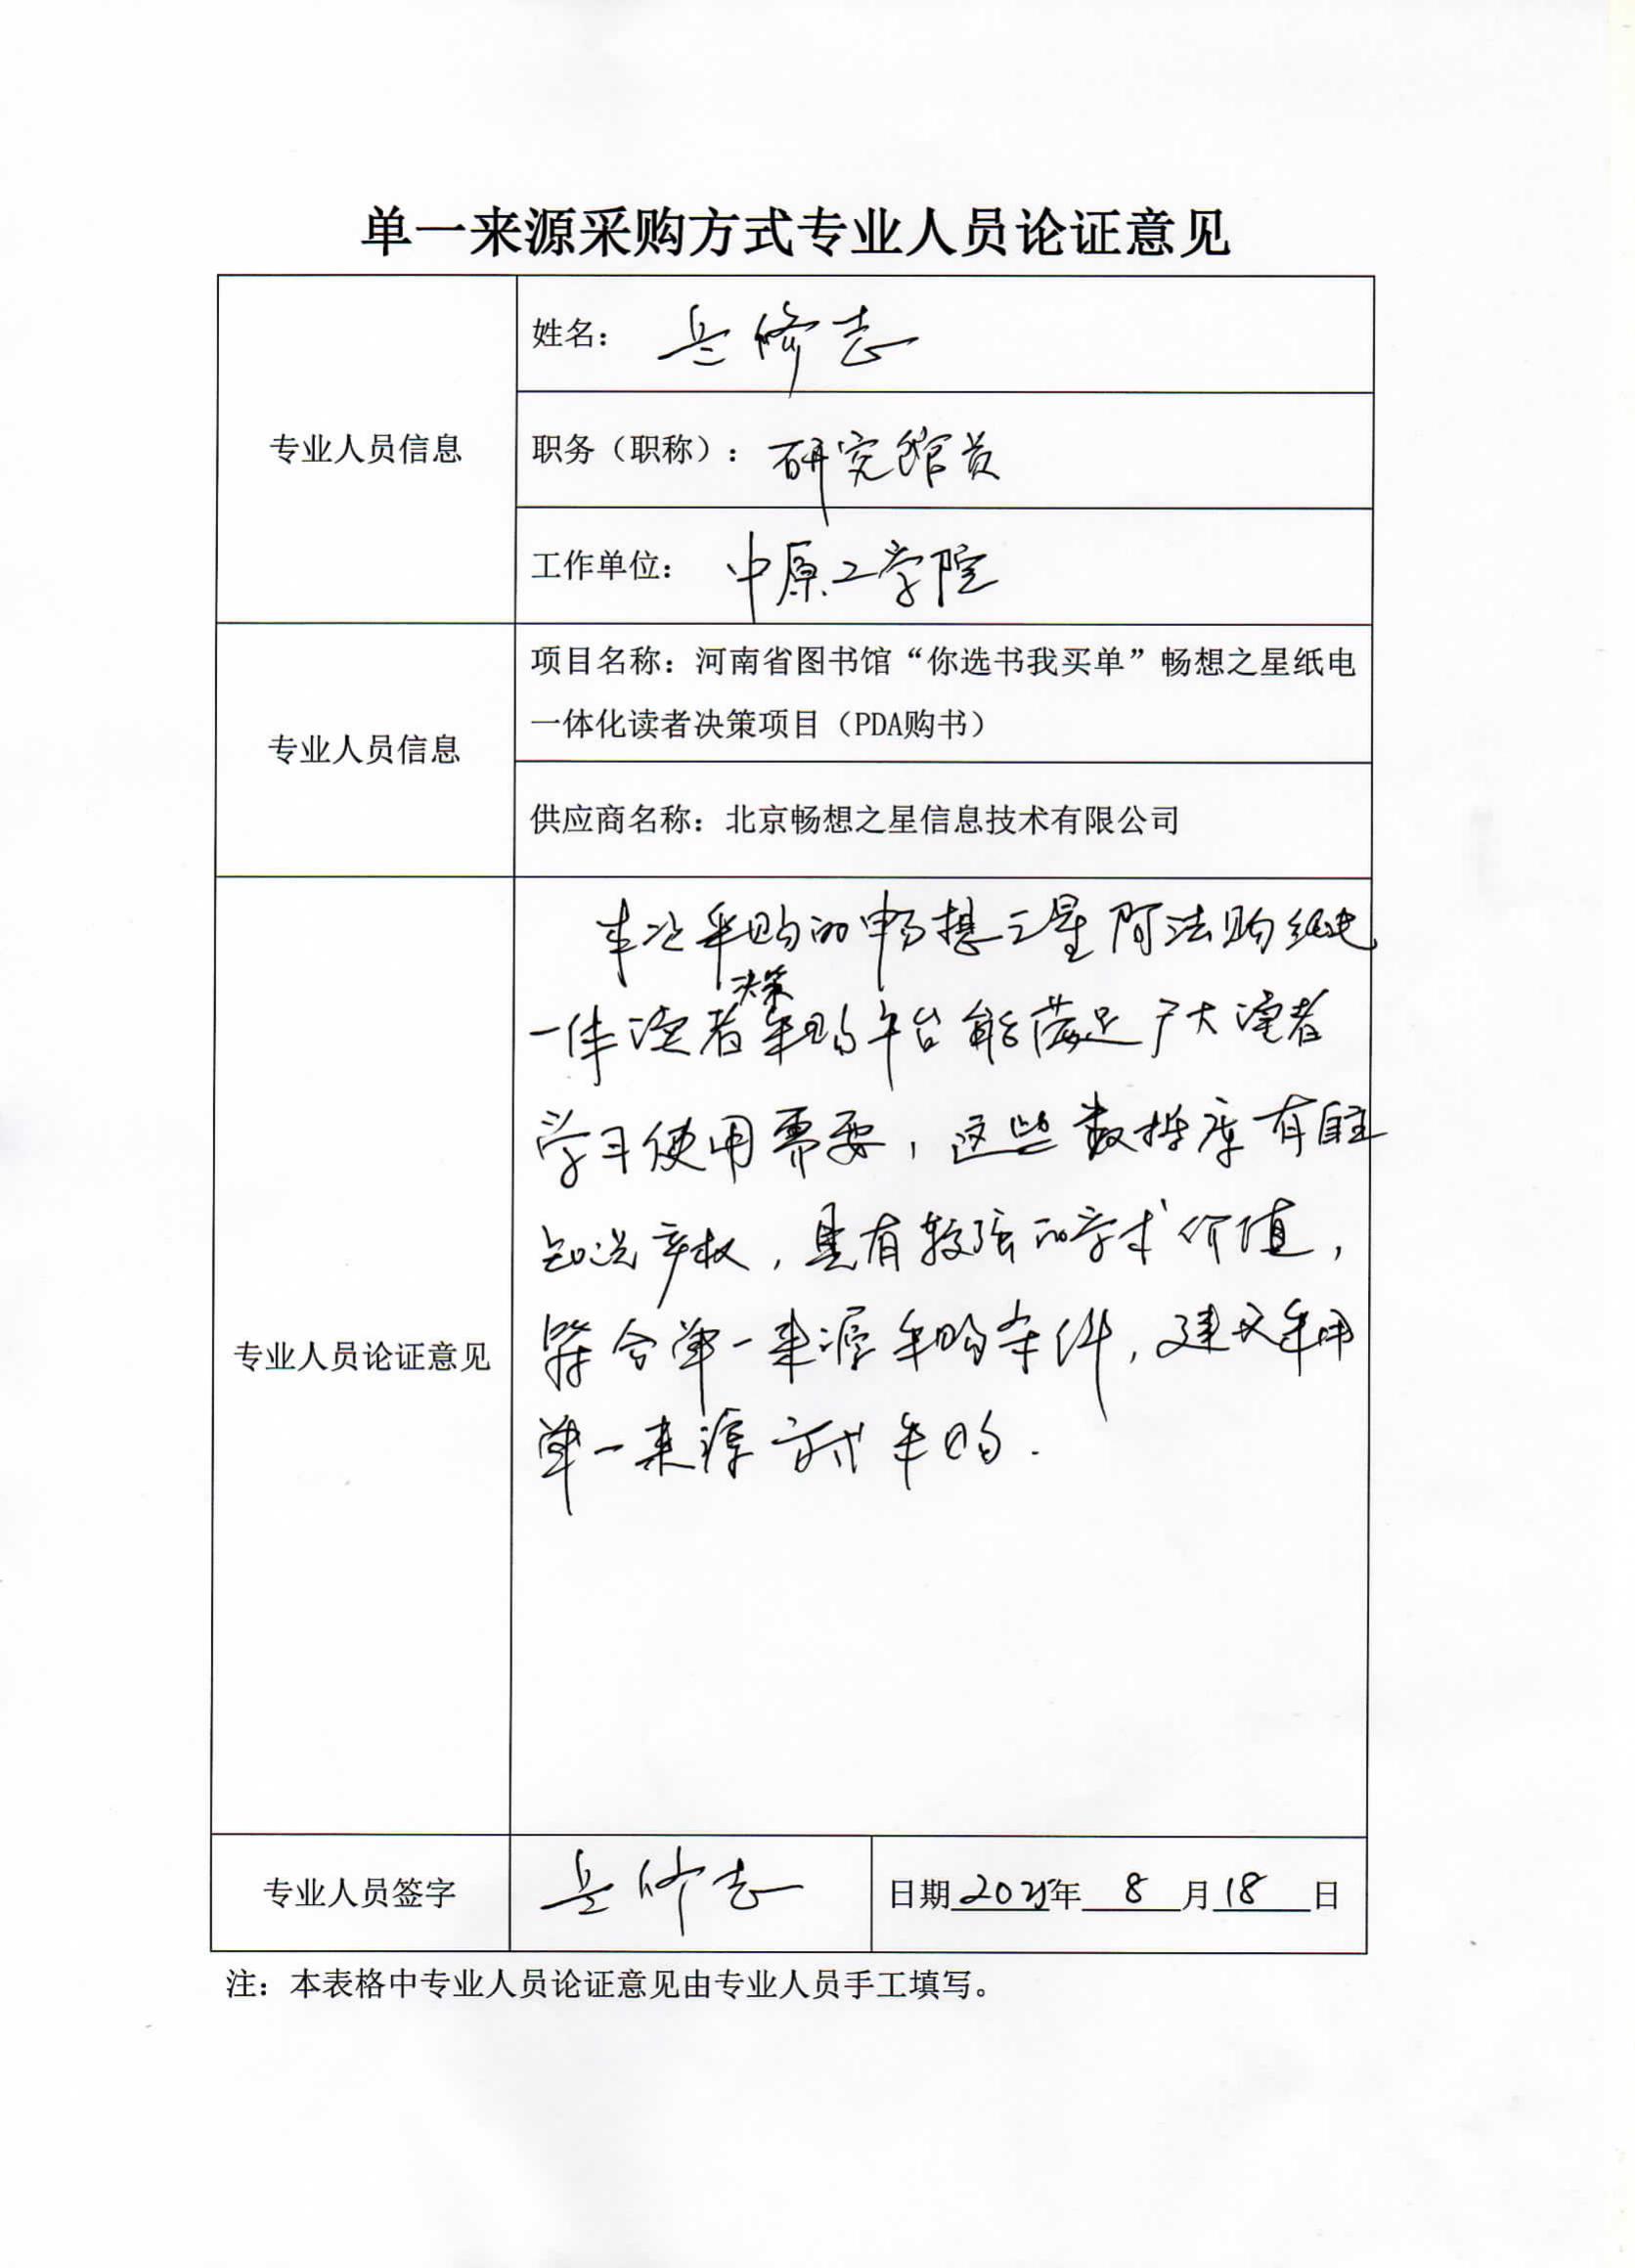 单一来源采购方式专业人员论证意见
专业人员信息
姓名：岳修志
职务（职称）：研究馆员
工作单位：中原工学院
专业人员信息
项目名称：河南省图书馆“你选书我买单”畅想之星纸电
一体化读者决策项目（PDA购书）
供应商名称：北京畅想之星信息技术有限公司
专业人员论证意见
本次采购的畅想之星阅法购纸电
决策
一体读者采购平台能满足广大读者
学习使用需要，这些数据库有自主
知识产权，具有较强的学术价值，
符合单一来源采购条件，建议采用
单一来源方式采购.
专业人员签字
岳修志
日期2025年8月18日
注：本表格中专业人员论证意见由专业人员手工填写。